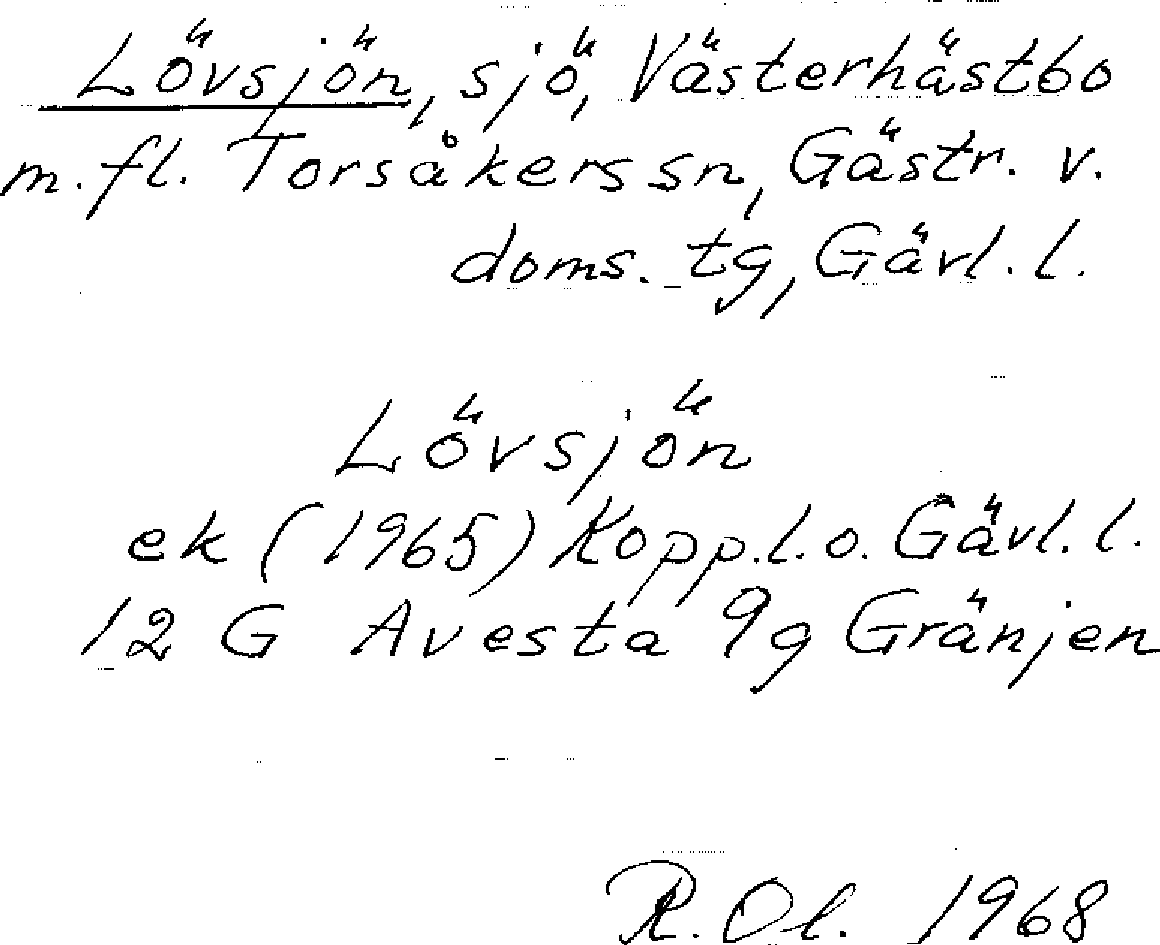 Lövsjön, sjö, Västerhästbo
m. fl. Torsåkers sn, Gästr. v.
doms. tg, Gävl. l.
Lövsjön
ek (1965) Kopp. l. o. Gävl. l.
12 G Avesta 9g Gränjen
R. Ol. 1968